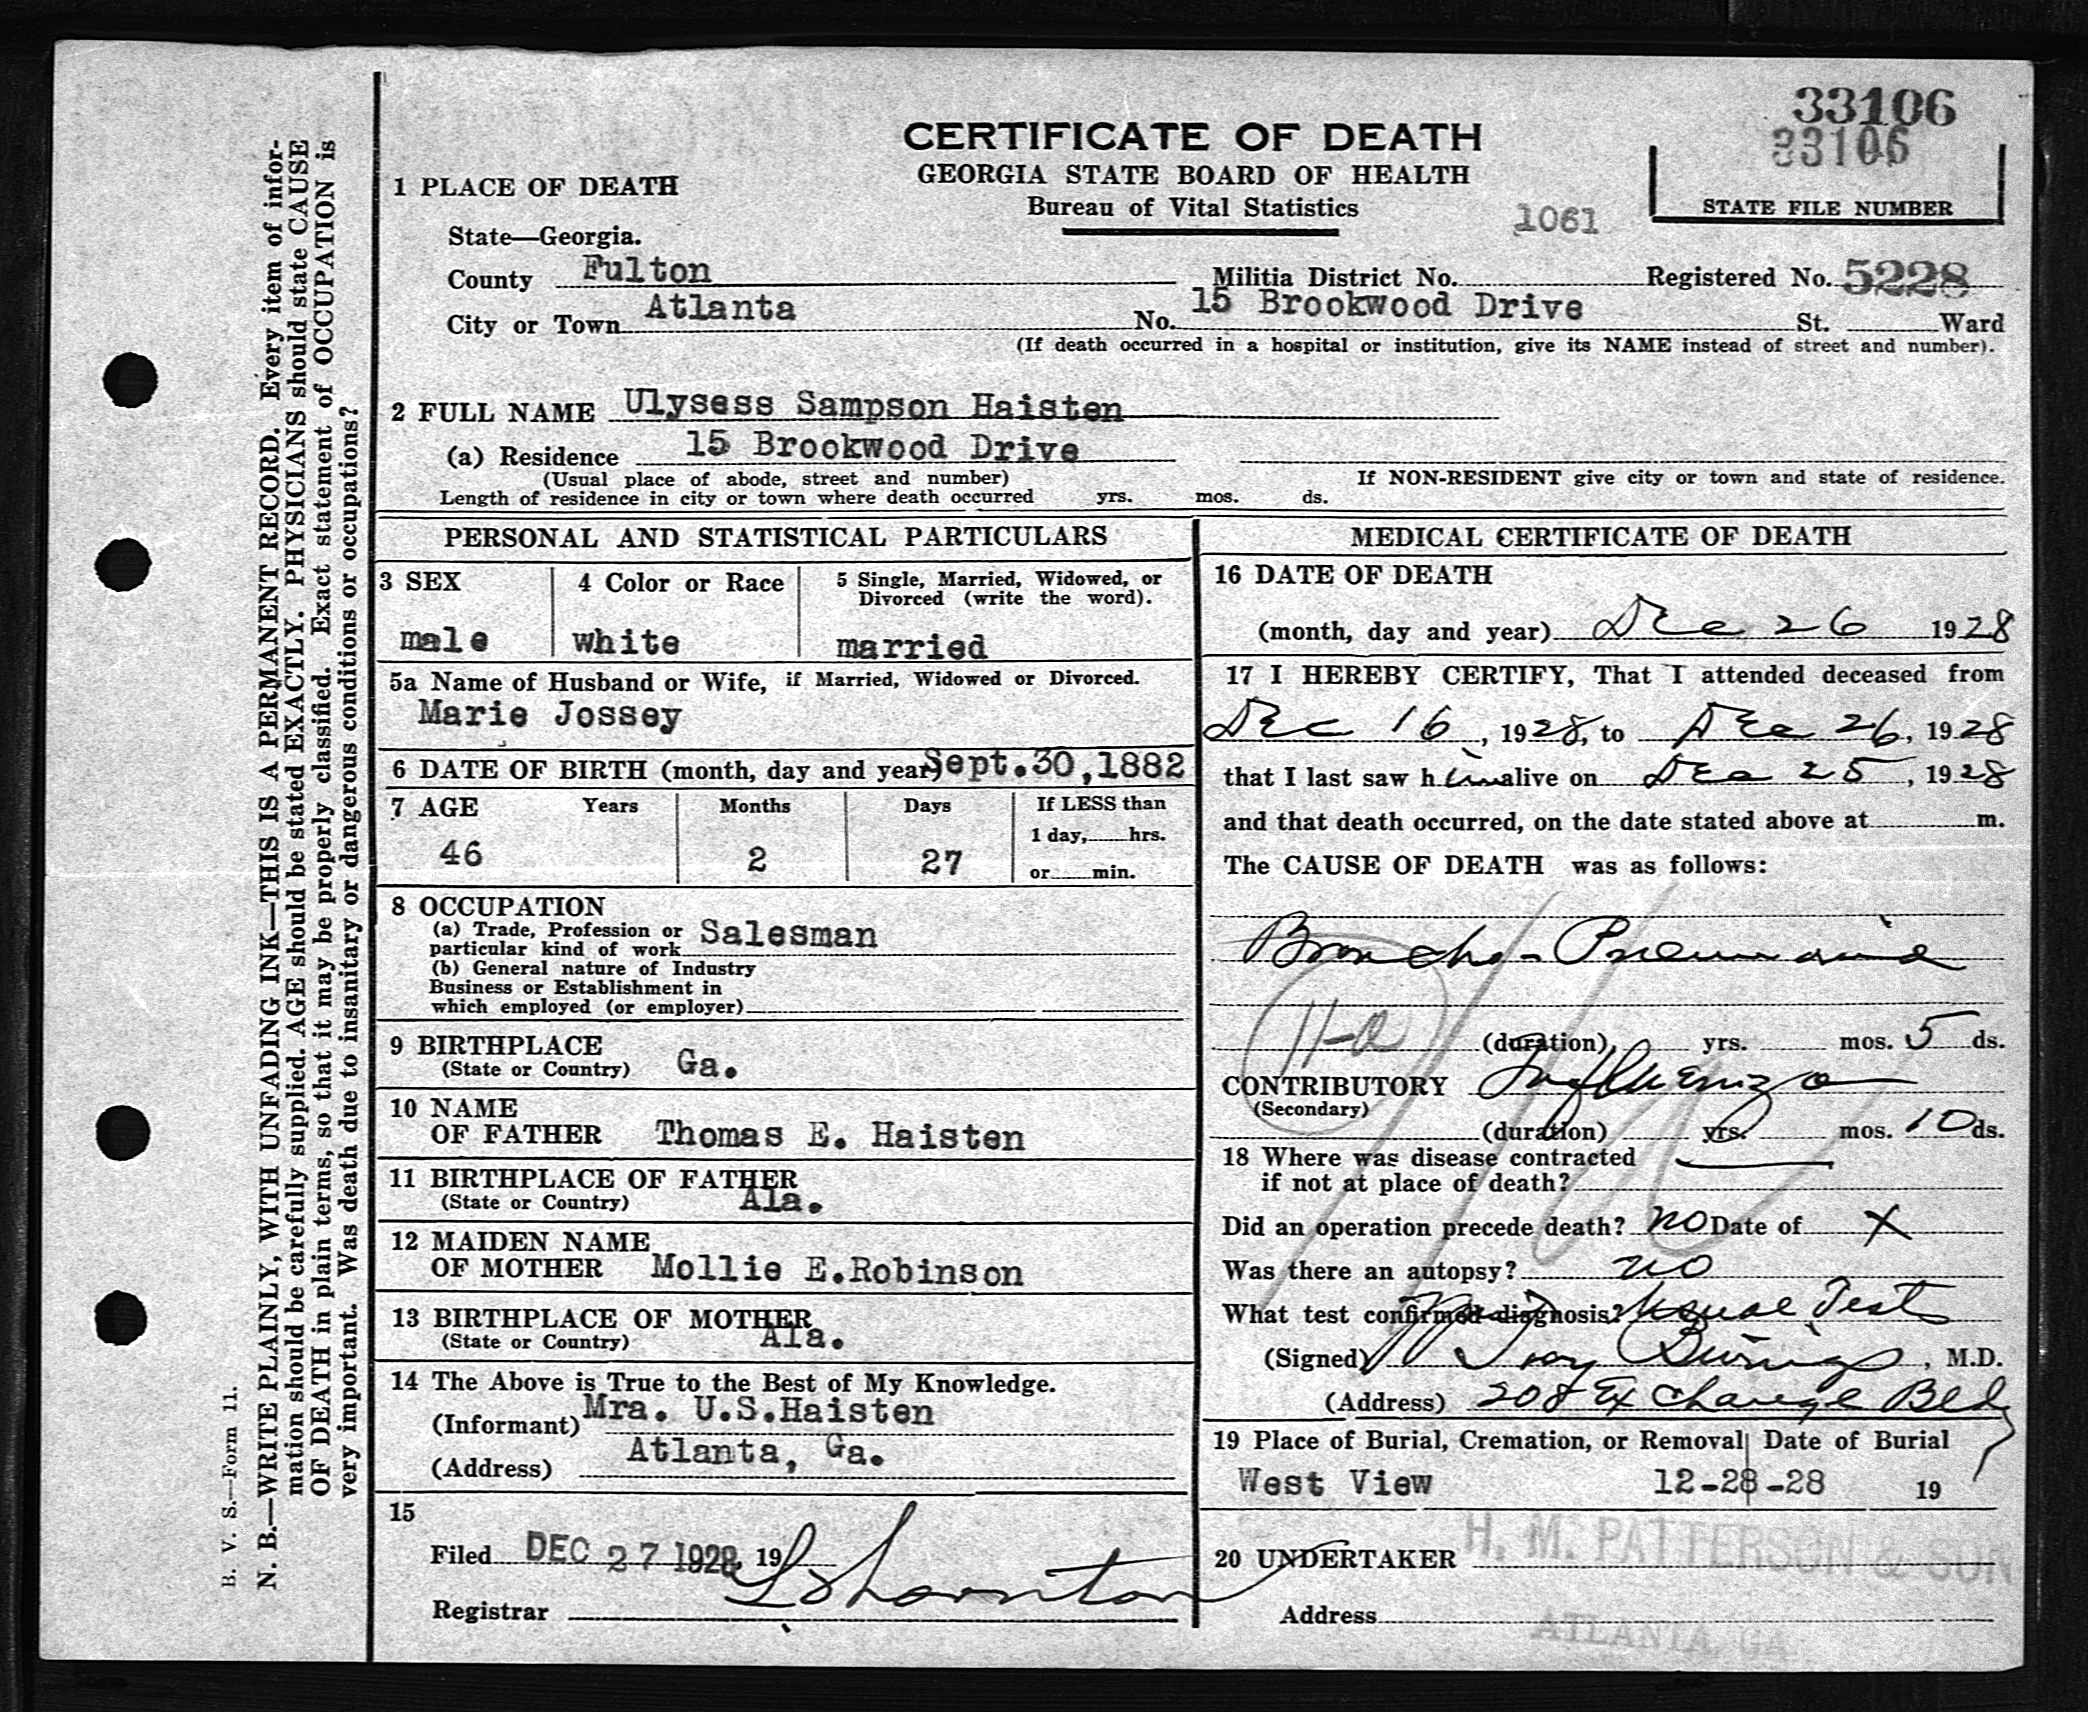 33106
33106
CERTIFICATE OF DEATH
GEORGIA STATE BOARD OF HEALTH
Bureau of Vital Statistics
1061
STATE FILE NUMBER
1 PLACE OF DEATH
State—Georgia.
County Fulton Militia District No. Registered No. 5228
City or Town Atlanta No. 15 Brookwood Drive St. Ward
(If death occurred in a hospital or institution, give its NAME instead of street and number).
2 FULL NAME Ulysess Sampson Haisten
(a) Residence 15 Brookwood Drive
(Usual place of abode, street and number) If NON-RESIDENT give city or town and state of residence.
Length of residence in city or town where death occurred yrs. mos. ds.
PERSONAL AND STATISTICAL PARTICULARS
3 SEX 4 Color or Race 5 Single, Married, Widowed, or
Divorced (write the word).
male white married
5a Name of Husband or Wife, if Married, Widowed or Divorced.
Marie Jossey
6 DATE OF BIRTH (month, day and year) Sept.30,1882
7 AGE Years Months Days If LESS than
1 day, hrs.
46 2 27
or min.
8 OCCUPATION
(a) Trade, Profession or
particular kind of work Salesman
(b) General nature of Industry
Business or Establishment in
which employed (or employer)
9 BIRTHPLACE
(State or Country) Ga.
10 NAME
OF FATHER Thomas E. Haisten
11 BIRTHPLACE OF FATHER
(State or Country) Ala.
12 MAIDEN NAME
OF MOTHER Mollie E.Robinson
13 BIRTHPLACE OF MOTHER
(State or Country) Ala.
14 The Above is True to the Best of My Knowledge.
(Informant) Mra. U.S.Haisten
(Address) Atlanta, Ga.
15
Filed DEC 27 1928, 19
Registrar
MEDICAL CERTIFICATE OF DEATH
16 DATE OF DEATH
(month, day and year) Dec 26 1928
17 I HEREBY CERTIFY, That I attended deceased from
Dec 16, 1928, to Dec 26, 1928
that I last saw him alive on Dec 25, 1928
and that death occurred, on the date stated above at m.
The CAUSE OF DEATH was as follows:
Broncho-Pneumonia
11-a
(duration) yrs. mos. 5 ds.
CONTRIBUTORY Influenza
(Secondary)
(duration) yrs. mos. 10 ds.
18 Where was disease contracted
if not at place of death?
Did an operation precede death? no Date of X
Was there an autopsy? no
What test confirmed diagnosis? Usual Test
(Signed) Troy Bivings, M.D.
(Address) 208 Exchange Bldg
19 Place of Burial, Cremation, or Removal Date of Burial
West View 12-28-28 19
20 UNDERTAKER H. M. PATTERSON & SON
Address ATLANTA, GA.
B. V. S.—Form 11.
N. B.—WRITE PLAINLY, WITH UNFADING INK—THIS IS A PERMANENT RECORD. Every item of infor-
mation should be carefully supplied. AGE should be stated EXACTLY. PHYSICIANS should state CAUSE
OF DEATH in plain terms, so that it may be properly classified. Exact statement of OCCUPATION is
very important. Was death due to insanitary or dangerous conditions or occupations?